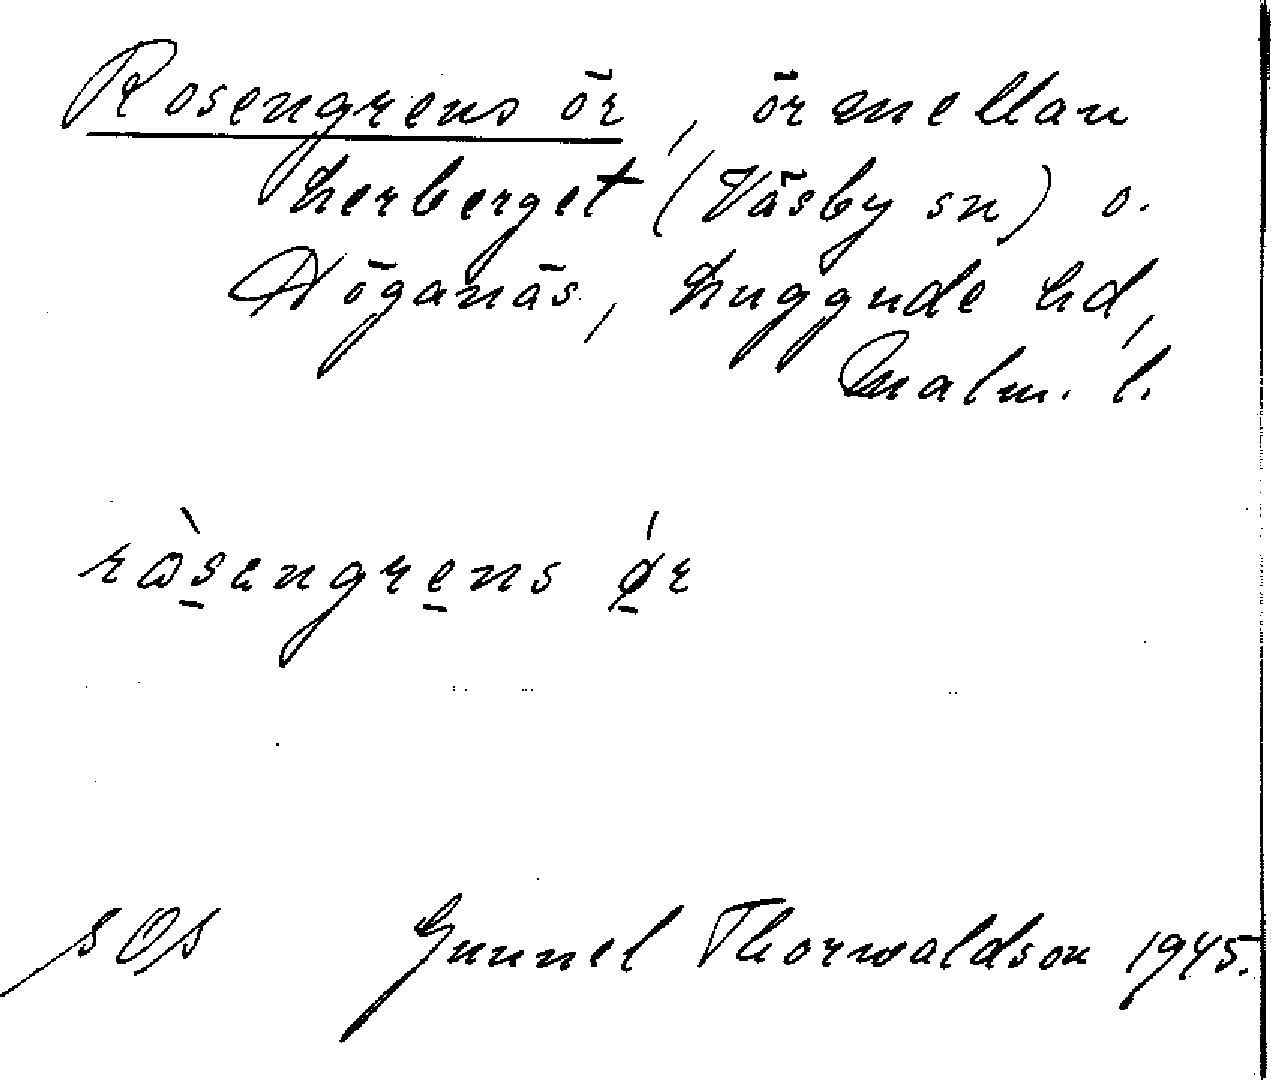 Rosengrens ör, ör mellan
Lerberget (Väsby sn) o.
Höganäs, Luggude hd,
Malm. l.
ròsəngrens ǿr
SOS Gunnel Thorwaldson 1945.